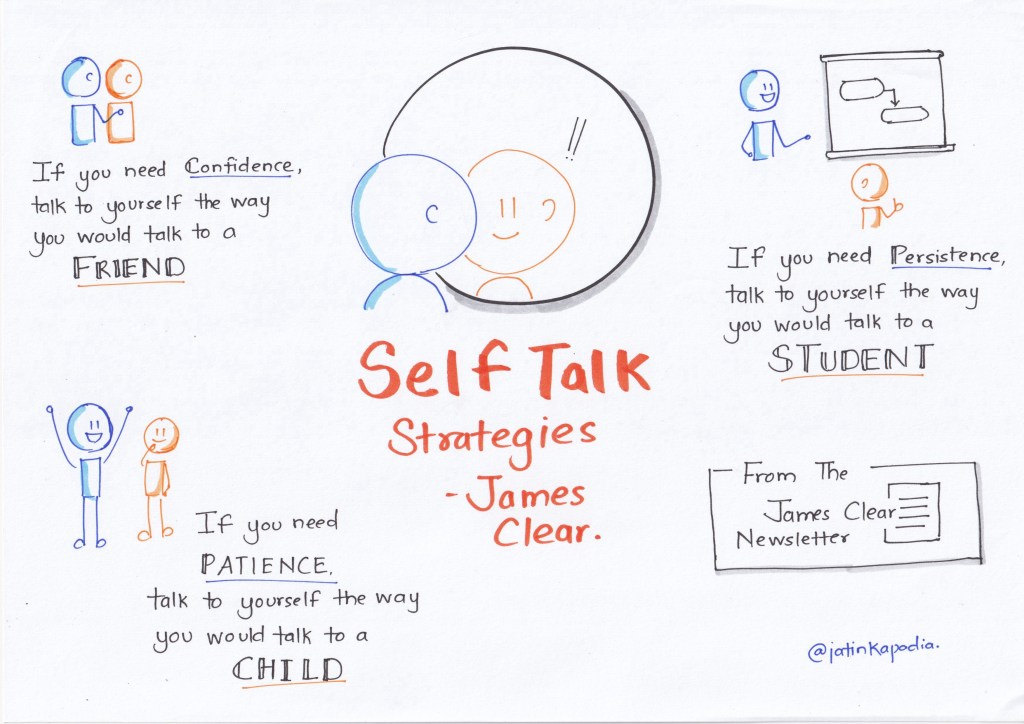 If you need Confidence,
talk to yourself the way
you would talk to a
FRIEND
Self Talk
Strategies
- James
Clear.
If you need Persistence,
talk to yourself the way
you would talk to a
STUDENT
If you need
PATIENCE,
talk to yourself the way
you would talk to a
CHILD
From The
James Clear
Newsletter
@jatinkapadia.